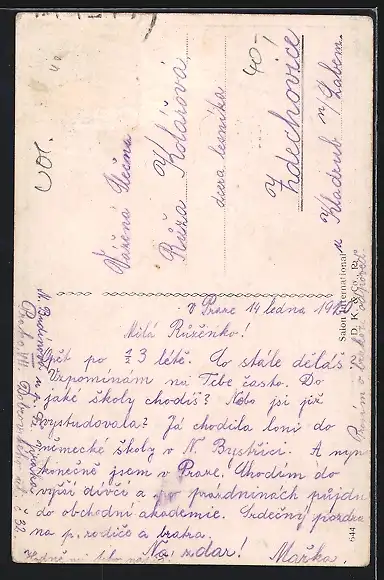 Vážená slečna
Růža Kolářová
dcera lesníka
Zdechovice
u Kladrub n/Labem.
40-
Salon International
J. D. K. & Co., P.
644
V Praze 14 ledna 19
Milá Růženko!
Opět po 3 létě. Co stále děláš?
Vzpomínám na Tebe často. Do
jaké školy chodíš? Nebo jsi již
vystudovala? Já chodila loni do
německé školy v N. Bystřici. A nyní
konečně jsem v Praze. Chodím do
vyšší dívčí a po prázdninách půjdu
do obchodní akademie. Srdečný pozdrav
na p. rodiče a bratra.
Na zdar! Mařka.
Prosím o brzkou odpověď
Praha VII